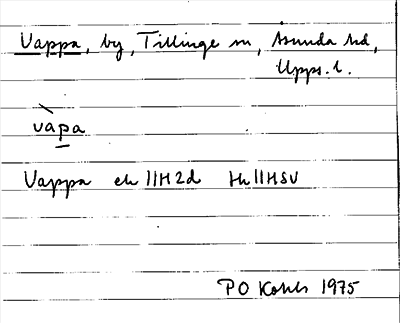 Vappa, by, Tillinge sn, Åsunda hd,
Upps. l.
vàpa
Vappa ek 11H2d Hr 11HSV
PO Kohls 1975